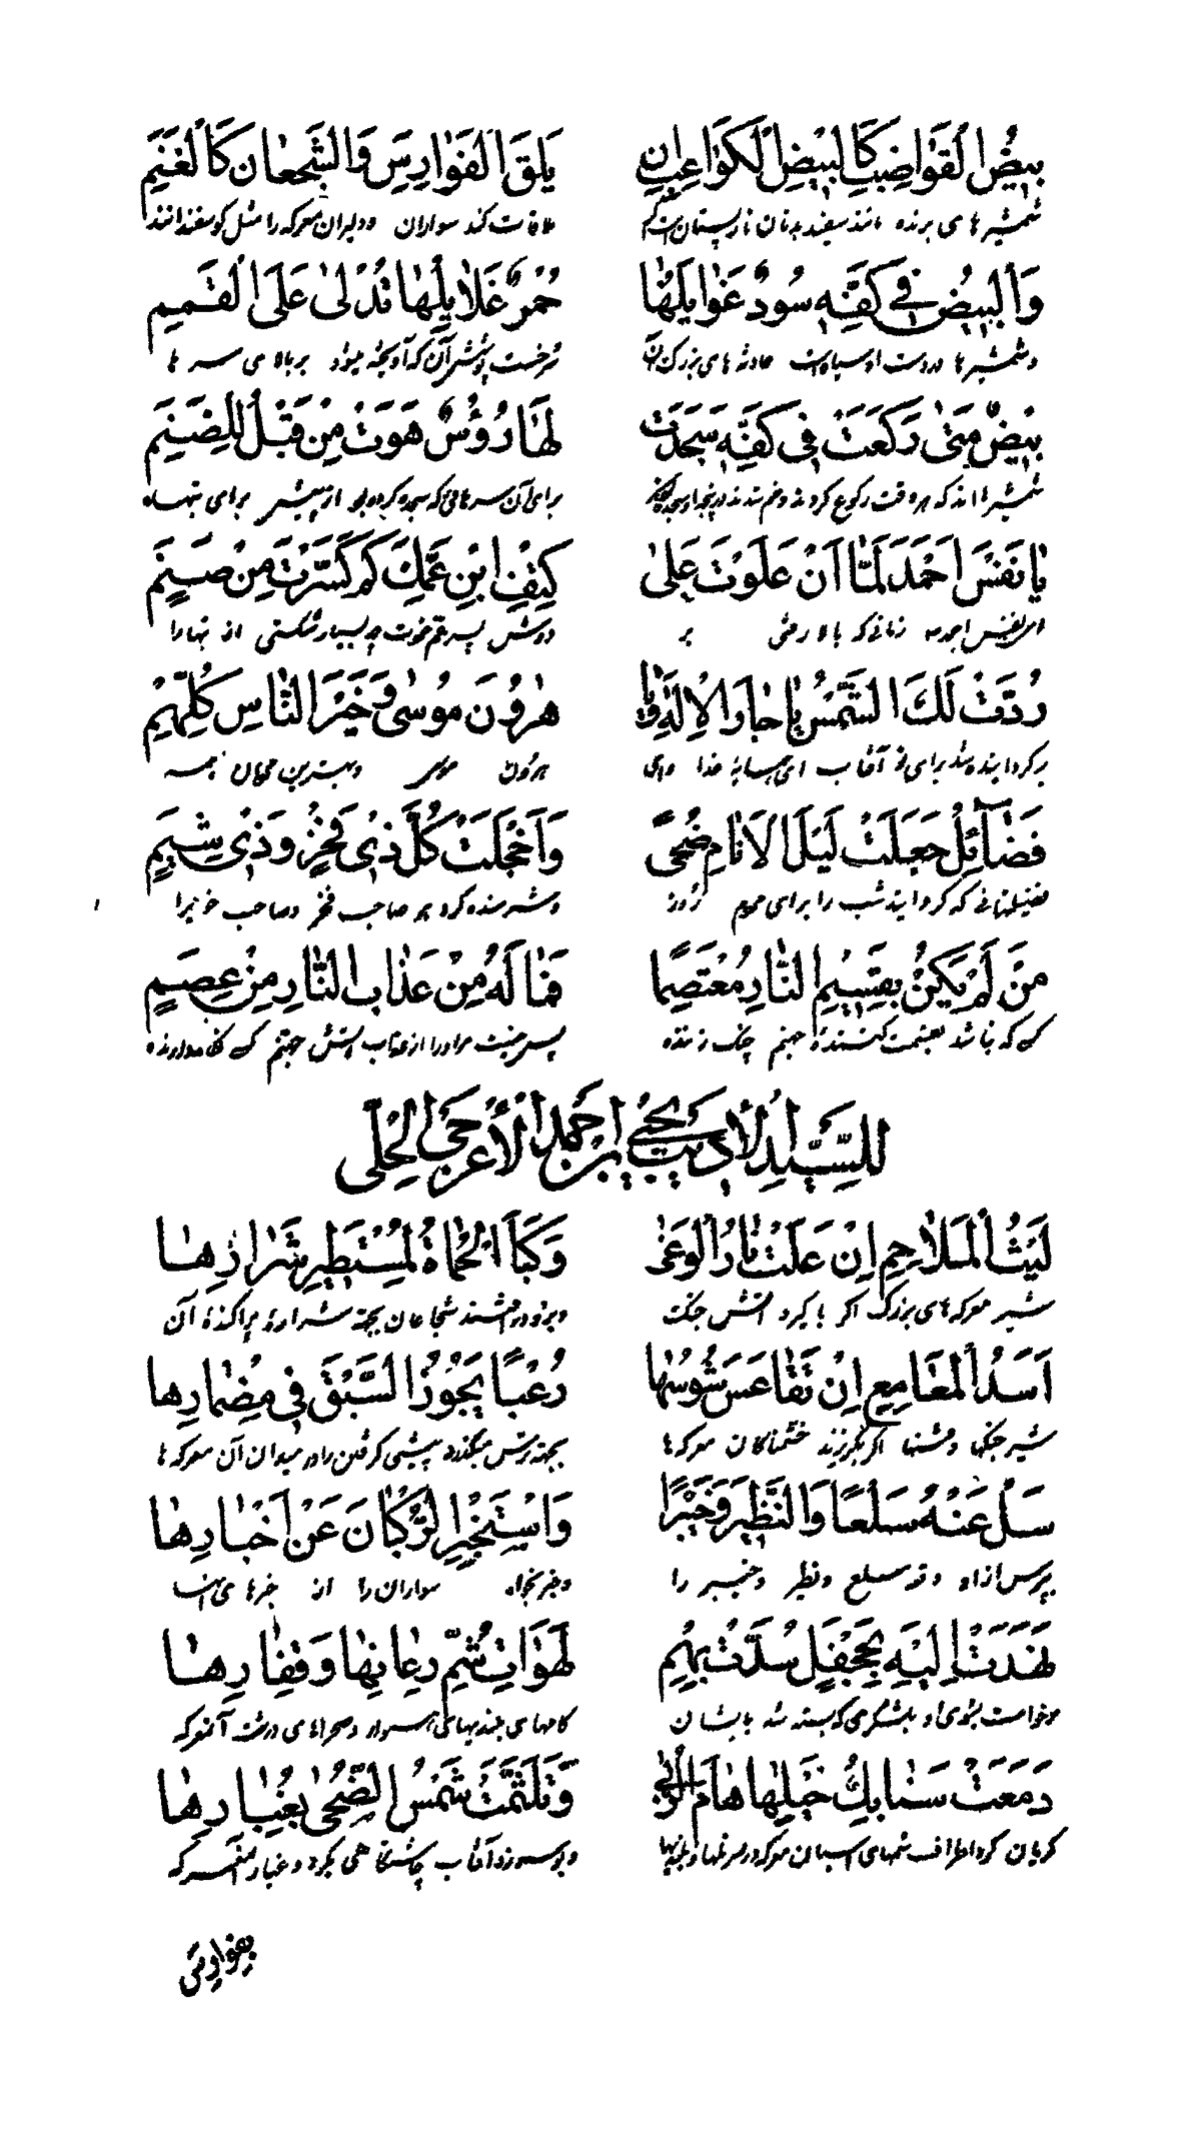 بِيضُ الْقَوَاضِبِ كَالْبِيضِ الْكَوَاعِبِ إِنْ يَلْقَ الْفَوَارِسَ وَالشُّجْعَانَ كَالْغَنَمِ
شمشیرهای برنده مانند سفید بدنان نارپستان است ملاقات کند سواران ودلیران معرکه را مثل گوسفند مانند
وَالْبِيضُ فِي كَفِّهِ سُودٌ غَوَايِلُهَا حُمْرٌ غَلَايِلُهَا تُدْلىٰ عَلَى الْقِمَمِ
وشمشیرها در دست او سیاه است حادثه های بزرگ آن سرخست پوشش آن که آویخته میشود بر بالای سرها
بِيضٌ مَتىٰ رَكَعَتْ فِي كَفِّهِ سَجَدَتْ لَهَا رُؤُسٌ هَوَتْ مِنْ قَبْلُ لِلصَّنَمِ
شمشیرها اند که هر وقت رکوع کردند وخم شدند در پنجه او سجده برای آن سرهائی که سجده کرده بود از پیشتر برای بتها
يَا نَفْسَ أَحْمَدَ لَمَّا أَنْ عَلَوْتَ عَلىٰ كِتْفِ ابْنِ عَمِّكَ كَمْ كَسَّرْتَ مِنْ صَنَمِ
ای نفس احمد زمانی که بالا رفتی بر دوش پسر عم خودت چه بسیار شکستی از بتها را
رُدَّتْ لَكَ الشَّمْسُ يَا جَارَ الْإِلٰهِ وَيَا هٰرُونَ مُوسىٰ وَخَيْرَ النَّاسِ كُلِّهِمِ
برگردانیده شد برای تو آفتاب ای همسایه خدا وای هرون موسی وبهترین مردمان همه
فَضَائِلُ جَعَلَتْ لَيْلَ الْأَنَامِ ضُحًى وَأَخْجَلَتْ كُلَّ ذِي فَخْرٍ وَذِي شِيَمِ
فضیلتهائی که گردانید شب را برای مردم روز وشرمنده کرد هر صاحب فخر وصاحب خو را
مَنْ لَمْ يَكُنْ بِقَسِيمِ النَّارِ مُعْتَصِمًا فَمَا لَهُ مِنْ عَذَابِ النَّارِ مِنْ عِصَمِ
کسی که نباشد بقسمت کننده جهنم چنگ زننده پس نیست مر او را از عذاب آتش جهنم کسی نگاهدارنده
لِلسَّيِّدِ الْأَدِيبِ يَحْيَى بْنِ أَحْمَدَ الْأَعْرَجِيِّ الْحِلِّي
لَيْثُ الْمَلَاحِمِ إِنْ عَلَتْ نَارُ الْوَغىٰ وَكَبَا الْحُمَاةُ لِمُسْتَطِيرِ شَرَارِهَا
شیر معرکه های بزرگ اگر بالا گیرد آتش جنگ وبرو درافتند شجاعان بجهة شراره پراکنده آن
أَسَدُ الْمَعَامِعِ إِنْ تَقَاعَسَ شُوسُهَا رُعْبًا يَجُوزُ السَّبْقَ فِي مِضْمَارِهَا
شیر جنگها وفتنها اگر بگریزند خشمناکان معرکه ها بجهة ترس میگذرد پیشی گرفتن را در میدان آن معرکه ها
سَلْ عَنْهُ سَلْعًا وَالنَّظِيرَ وَخَيْبَرًا وَاسْتَخْبِرِ الرُّكْبَانَ عَنْ أَخْبَارِهَا
بپرس از او وقعه سلع ونظیر وخیبر را وخبر بخواه سواران را از خبرهای آنها
نَهَدَتْ إِلَيْهِ بِجَحْفَلٍ سُدَّتْ بِهِمْ لَهَوَاتُ شُمِّ رِعَانِهَا وَقِفَارِهَا
برخواست بسوی او بلشکری که بسته شد بایشان کامهای بلندیهای وصحراهای آن معرکه
دَمَعَتْ سَنَابِكُ خَيْلِهَا هَامَ الرُّبىٰ وَتَلَثَّمَتْ شَمْسُ الضُّحىٰ بِغُبَارِهَا
گریان کرد اطراف سمهای اسبان معرکه وبوسه زد آفتاب چاشتگاهی بگرد وغبار معرکه
بِفَوَارِسٍ